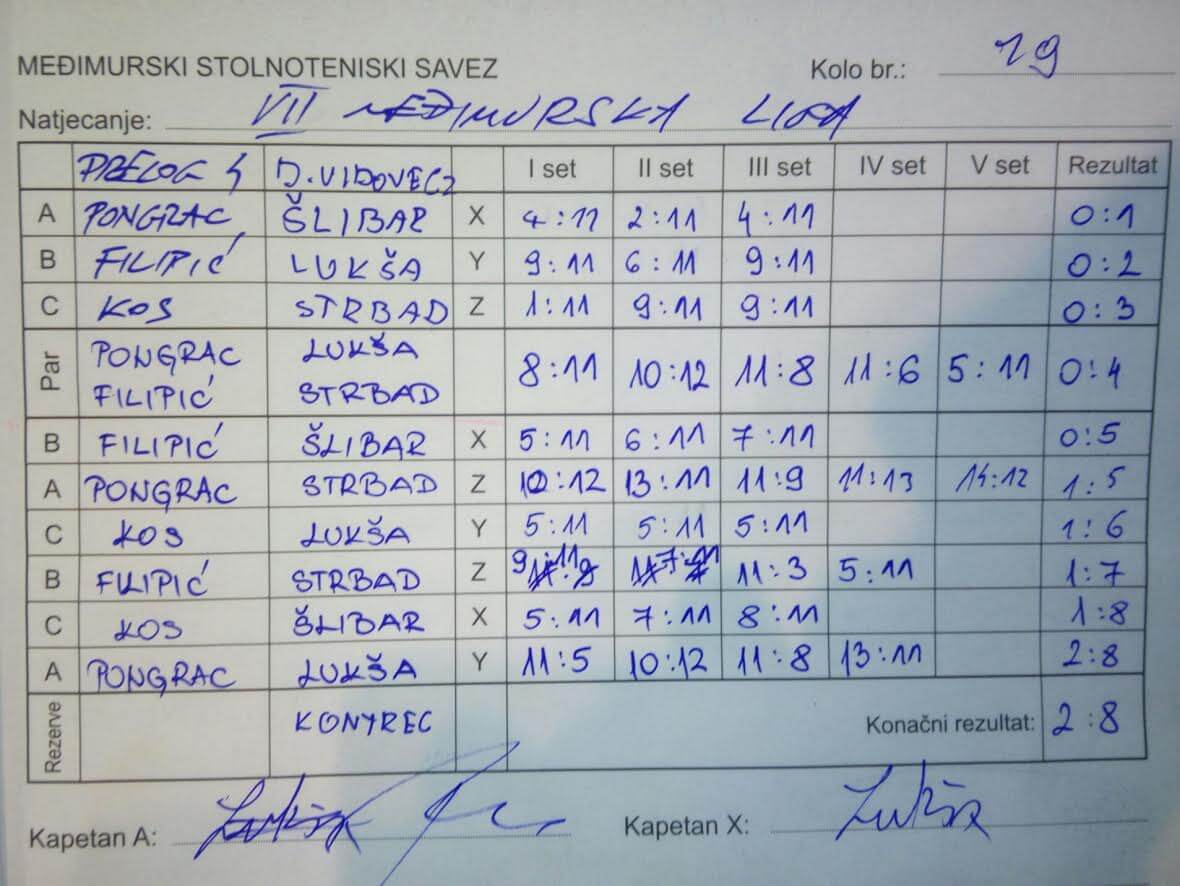 MEĐIMURSKI STOLNOTENISKI SAVEZ Kolo br.: 19
Natjecanje: VII MEĐIMURSKA LIGA
PRELOG 4 D.VIDOVEC2 I set II set III set IV set V set Rezultat
A PONGRAC ŠLIBAR X 4:11 2:11 4:11 0:1
B FILIPIĆ LUKŠA Y 9:11 6:11 9:11 0:2
C KOS STRBAD Z 1:11 9:11 9:11 0:3
Par PONGRAC LUKŠA 8:11 10:12 11:8 11:6 5:11 0:4
FILIPIĆ STRBAD
B FILIPIĆ ŠLIBAR X 5:11 6:11 7:11 0:5
A PONGRAC STRBAD Z 10:12 13:11 11:9 11:13 14:12 1:5
C KOS LUKŠA Y 5:11 5:11 5:11 1:6
B FILIPIĆ STRBAD Z 9:11 7:11 11:3 5:11 1:7
C KOS ŠLIBAR X 5:11 7:11 8:11 1:8
A PONGRAC LUKŠA Y 11:5 10:12 11:8 13:11 2:8
Rezerve KONYREC Konačni rezultat: 2:8
Kapetan A: Kapetan X: Lukša